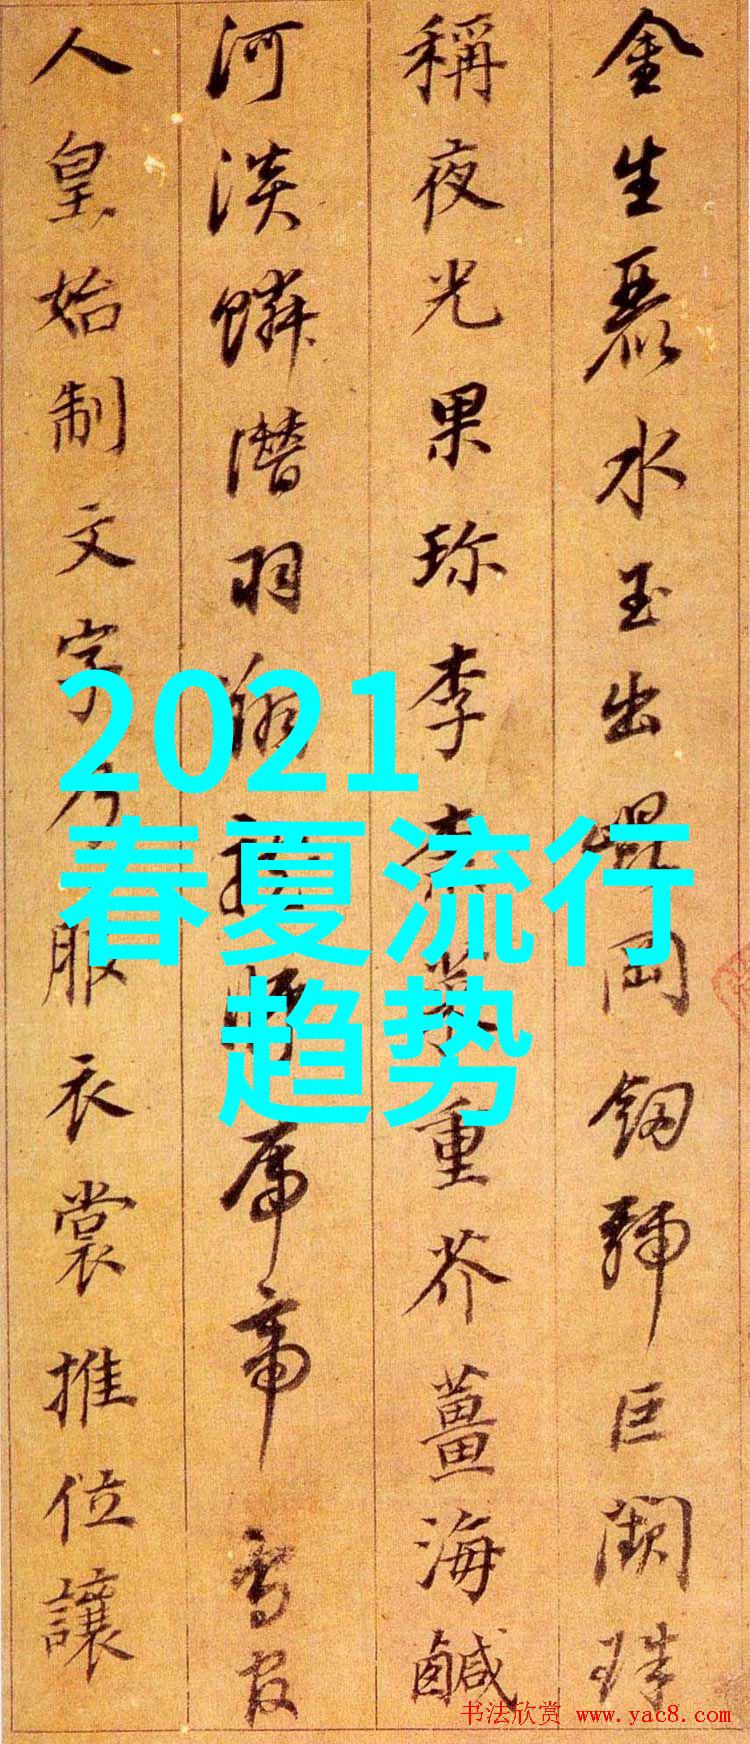 金生麗水玉出崐岡劒號巨闕珠
稱夜光果珎李柰菜重芥薑海鹹
河淡鱗潛羽翔龍師帝鳥官
人皇始制文字乃服衣裳推位讓
2021
春夏流行
趋势
书法欣赏 www.yac8.com